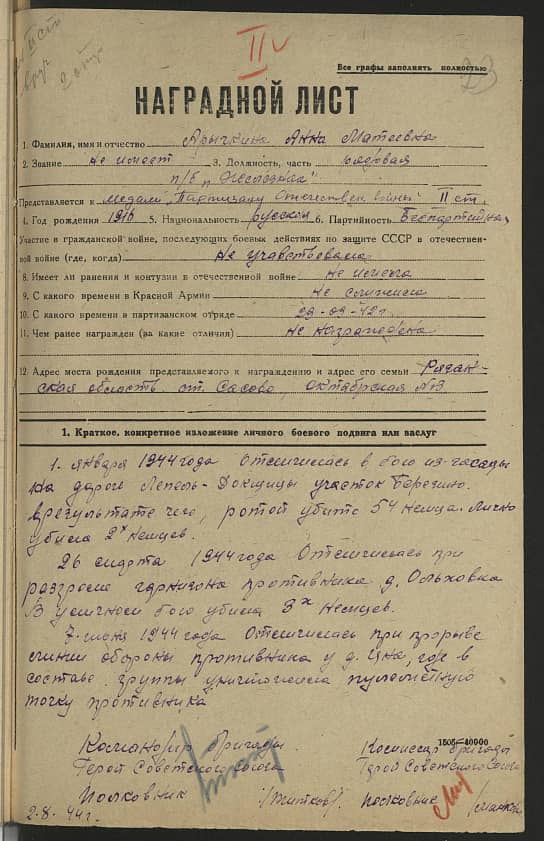 II
Все графы заполнять полностью
23
НАГРАДНОЙ ЛИСТ
1. Фамилия, имя и отчество Арычкина Анна Матвеевна
2. Звание не имеет 3. Должность, часть рядовая
п/б п "Железняк"
Представляется к медали "Партизану Отечествен войны" II ст.
4. Год рождения 1916 5. Национальность русская 6. Партийность Беспартийная
Участие в гражданской войне, последующих боевых действиях по защите СССР в отечествен-
ной войне (где, когда) Не участвовала
8. Имеет ли ранения и контузии в отечественной войне Не имеет
9. С какого времени в Красной Армии Не служила
10. С какого времени в партизанском отряде 29-09-42 г.
11. Чем ранее награжден (за какие отличия) Не награждена
12. Адрес места рождения представляемого к награждению и адрес его семьи Рязан-
ская область ст. Сасово, Октябрская №13
1. Краткое, конкретное изложение личного боевого подвига или заслуг
1. января 1944 года Отличилась в бою из засады
на дороге Лепель-Докшицы участок Березино.
врезультате чего, ротой убито 54 немца. Лично
убила 2х немцев.
26 марта 1944 года Отличилась при
разгроме гарнизона противника д. Ольховка
В уличном бою убила 3х Немцев.
7 июня 1944 года Отличилась при прорыве
линии обороны противника у д. Цна, где в
составе группы уничтожила пулеметную
точку противника
1505—40000
Командир бригады Комиссар бригады
Герой Советского союза Герой Советского Союза
Полковник /Титков/. полковник
2-8-44 г.